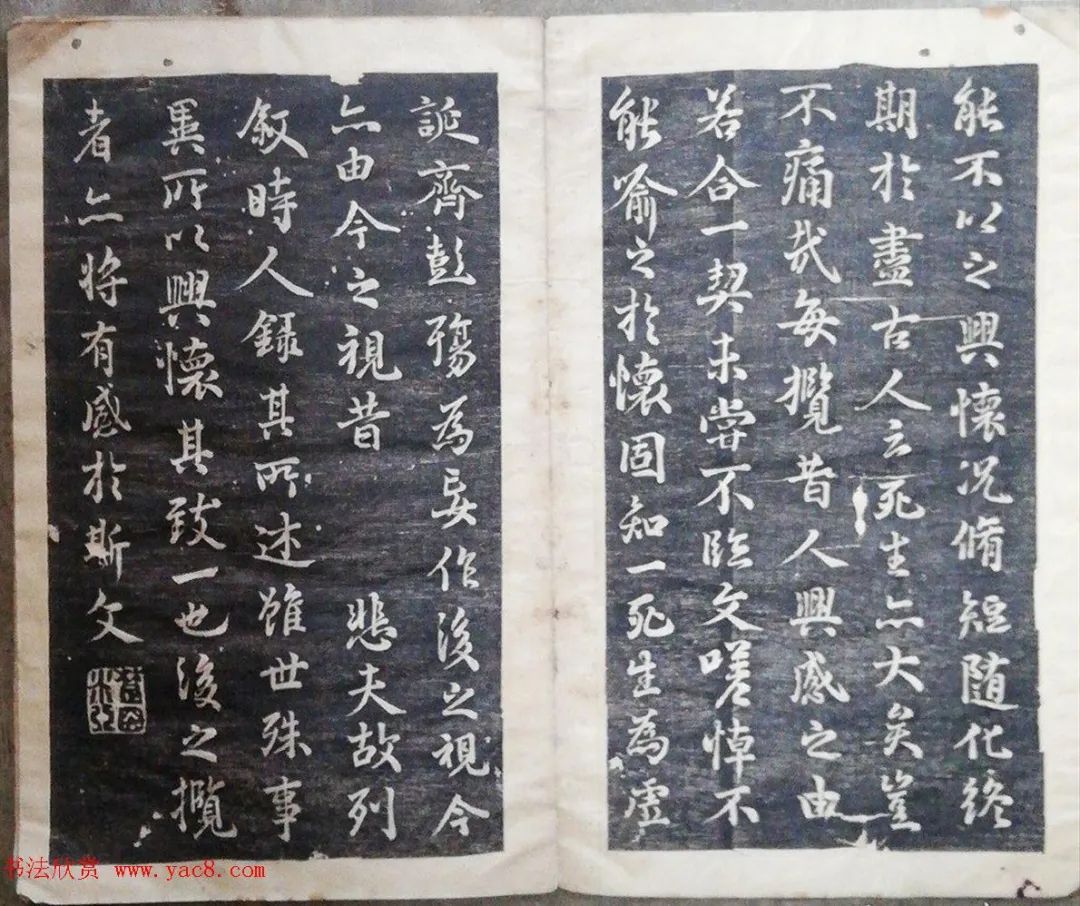 能不以之興懷况脩短随化終
期於盡古人云死生亦大矣豈
不痛哉每攬昔人興感之由
若合一契未甞不臨文嗟悼不
能喻之於懷固知一死生為虛
誕齊彭殤為妄作後之視今
亦由今之視昔 悲夫故列
敘時人錄其所述雖世殊事
異所以興懷其致一也後之攬
者亦將有感於斯文
书法欣赏 www.yac8.com